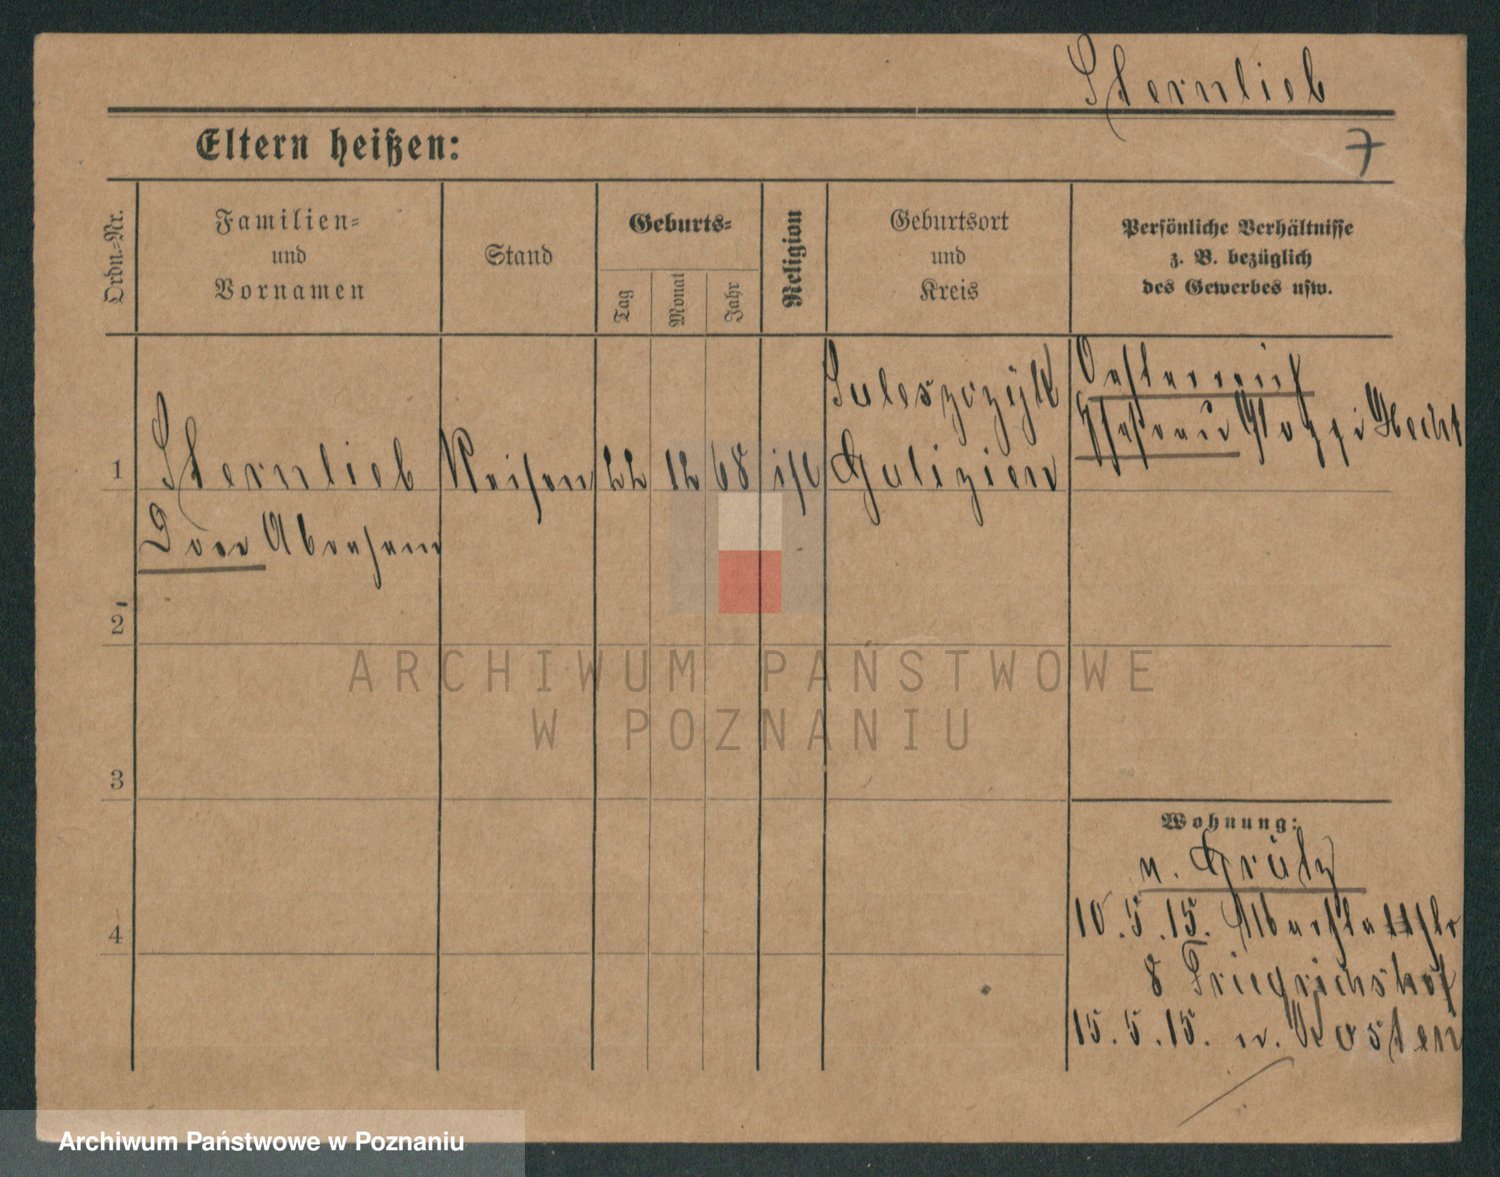 Sternlieb
7
Eltern heißen:
Ordn.-Nr.
Familien-
und
Vornamen
Stand
Geburts-
Tag
Monat
Jahr
Religion
Geburtsort
und
Kreis
Persönliche Verhältnisse
z. B. bezüglich
des Gewerbes usw.
1
Sternlieb
Abraham
22
12
68
isr
Galizien
Oesterreich
2
3
4
Wohnung:
n. Grätz
10.5.15.
8 Friedrichshof
15.5.15. n. Kosten
ARCHIWUM PAŃSTWOWE
W POZNANIU
Archiwum Państwowe w Poznaniu